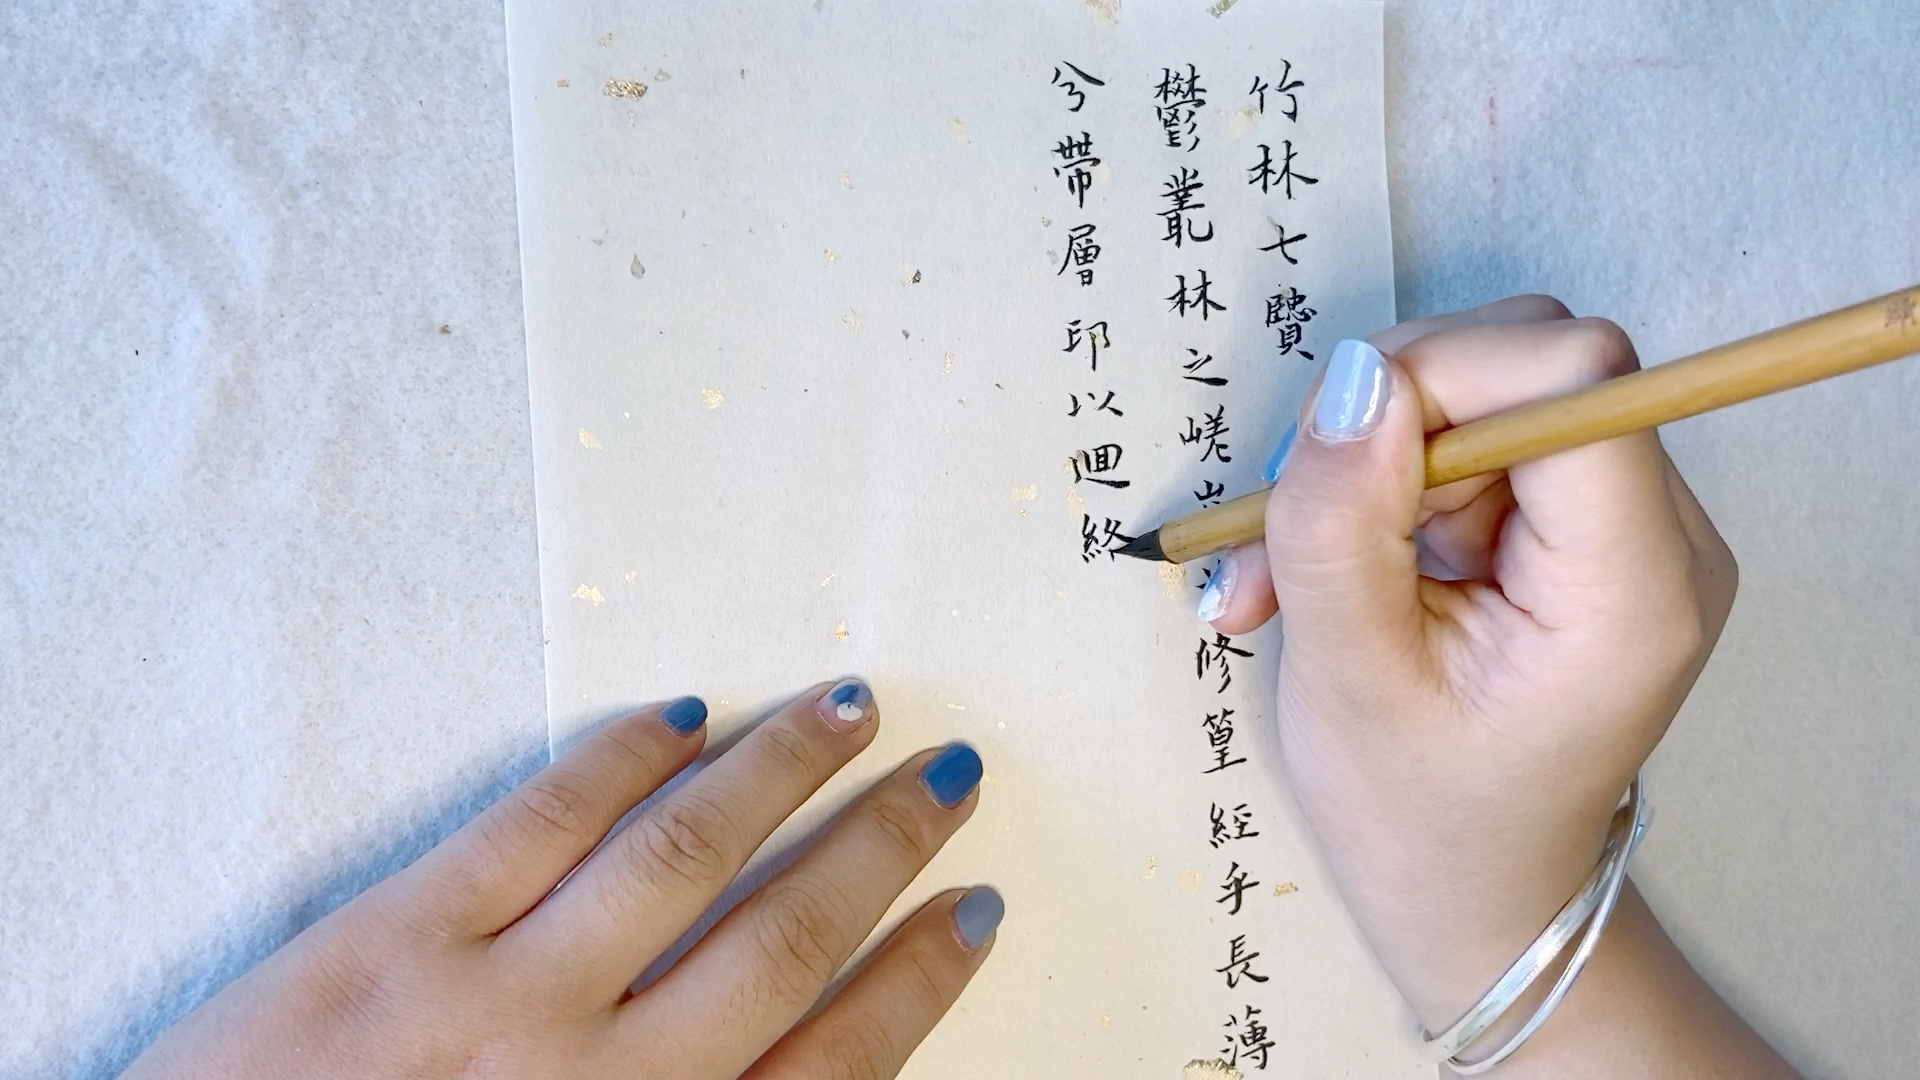 竹林七贤
鬱叢林之嵯 修篁經乎長薄
兮帶層邱以迴